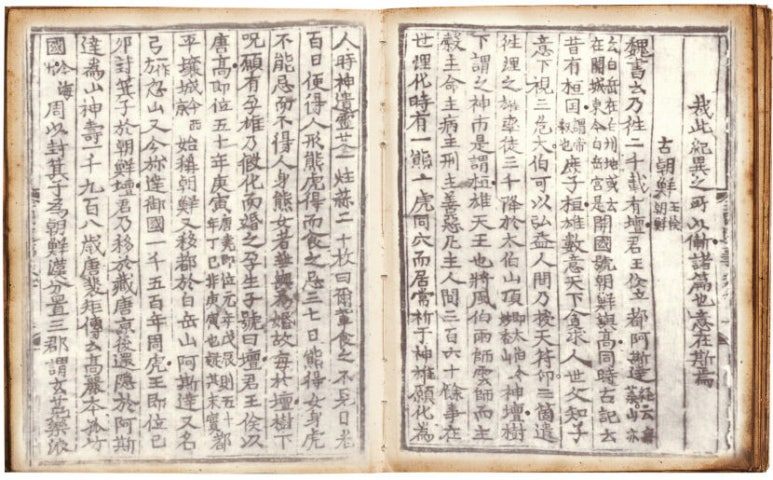 此紀異之可以諸篇也意在斯焉
古朝鮮 王儉朝鮮
魏書云乃徃二千載有壇君王儉立都阿斯達 經云無葉山亦
云白岳在白州地或云在開城東今白岳宮是 開國號朝鮮與高同時古記云
昔有桓囯 謂帝釋也 庶子桓雄數意天下貪求人世父知子
意下視三危太伯可以弘益人間乃授天符印三箇遣
徃理之雄率徒三千降於太伯山頂 即太伯今妙香山 神壇樹
下謂之神市是謂桓雄天王也將風伯雨師雲師而主
糓主命主病主刑主善惡凡主人間三百六十餘事在
世理化時有一熊一虎同穴而居常祈于神雄願化為
人時神遺靈艾一炷蒜二十枚曰爾軰食之不見日光
百日便得人形熊虎得而食之忌三七日熊得女身虎
不能忌而不得人身熊女者無與為婚故每於壇樹下
呪願有孕雄乃假化而婚之孕生子號曰壇君王儉以
唐高即位五十年庚寅 唐堯即位元年戊辰則五十年丁巳非庚寅也疑其未實 都
平壤城 今西京 始稱朝鮮又移都於白岳山阿斯達又名
弓 一作方 忽山又今旀達御國一千五百年周虎王即位己
卯封箕子於朝鮮壇君乃移於藏唐京後還隱於阿斯
達為山神壽一千九百八歳唐裴矩傳云高麗本孤竹
國 今海州 周以封箕子為朝鮮漢分置三郡謂玄菟樂浪